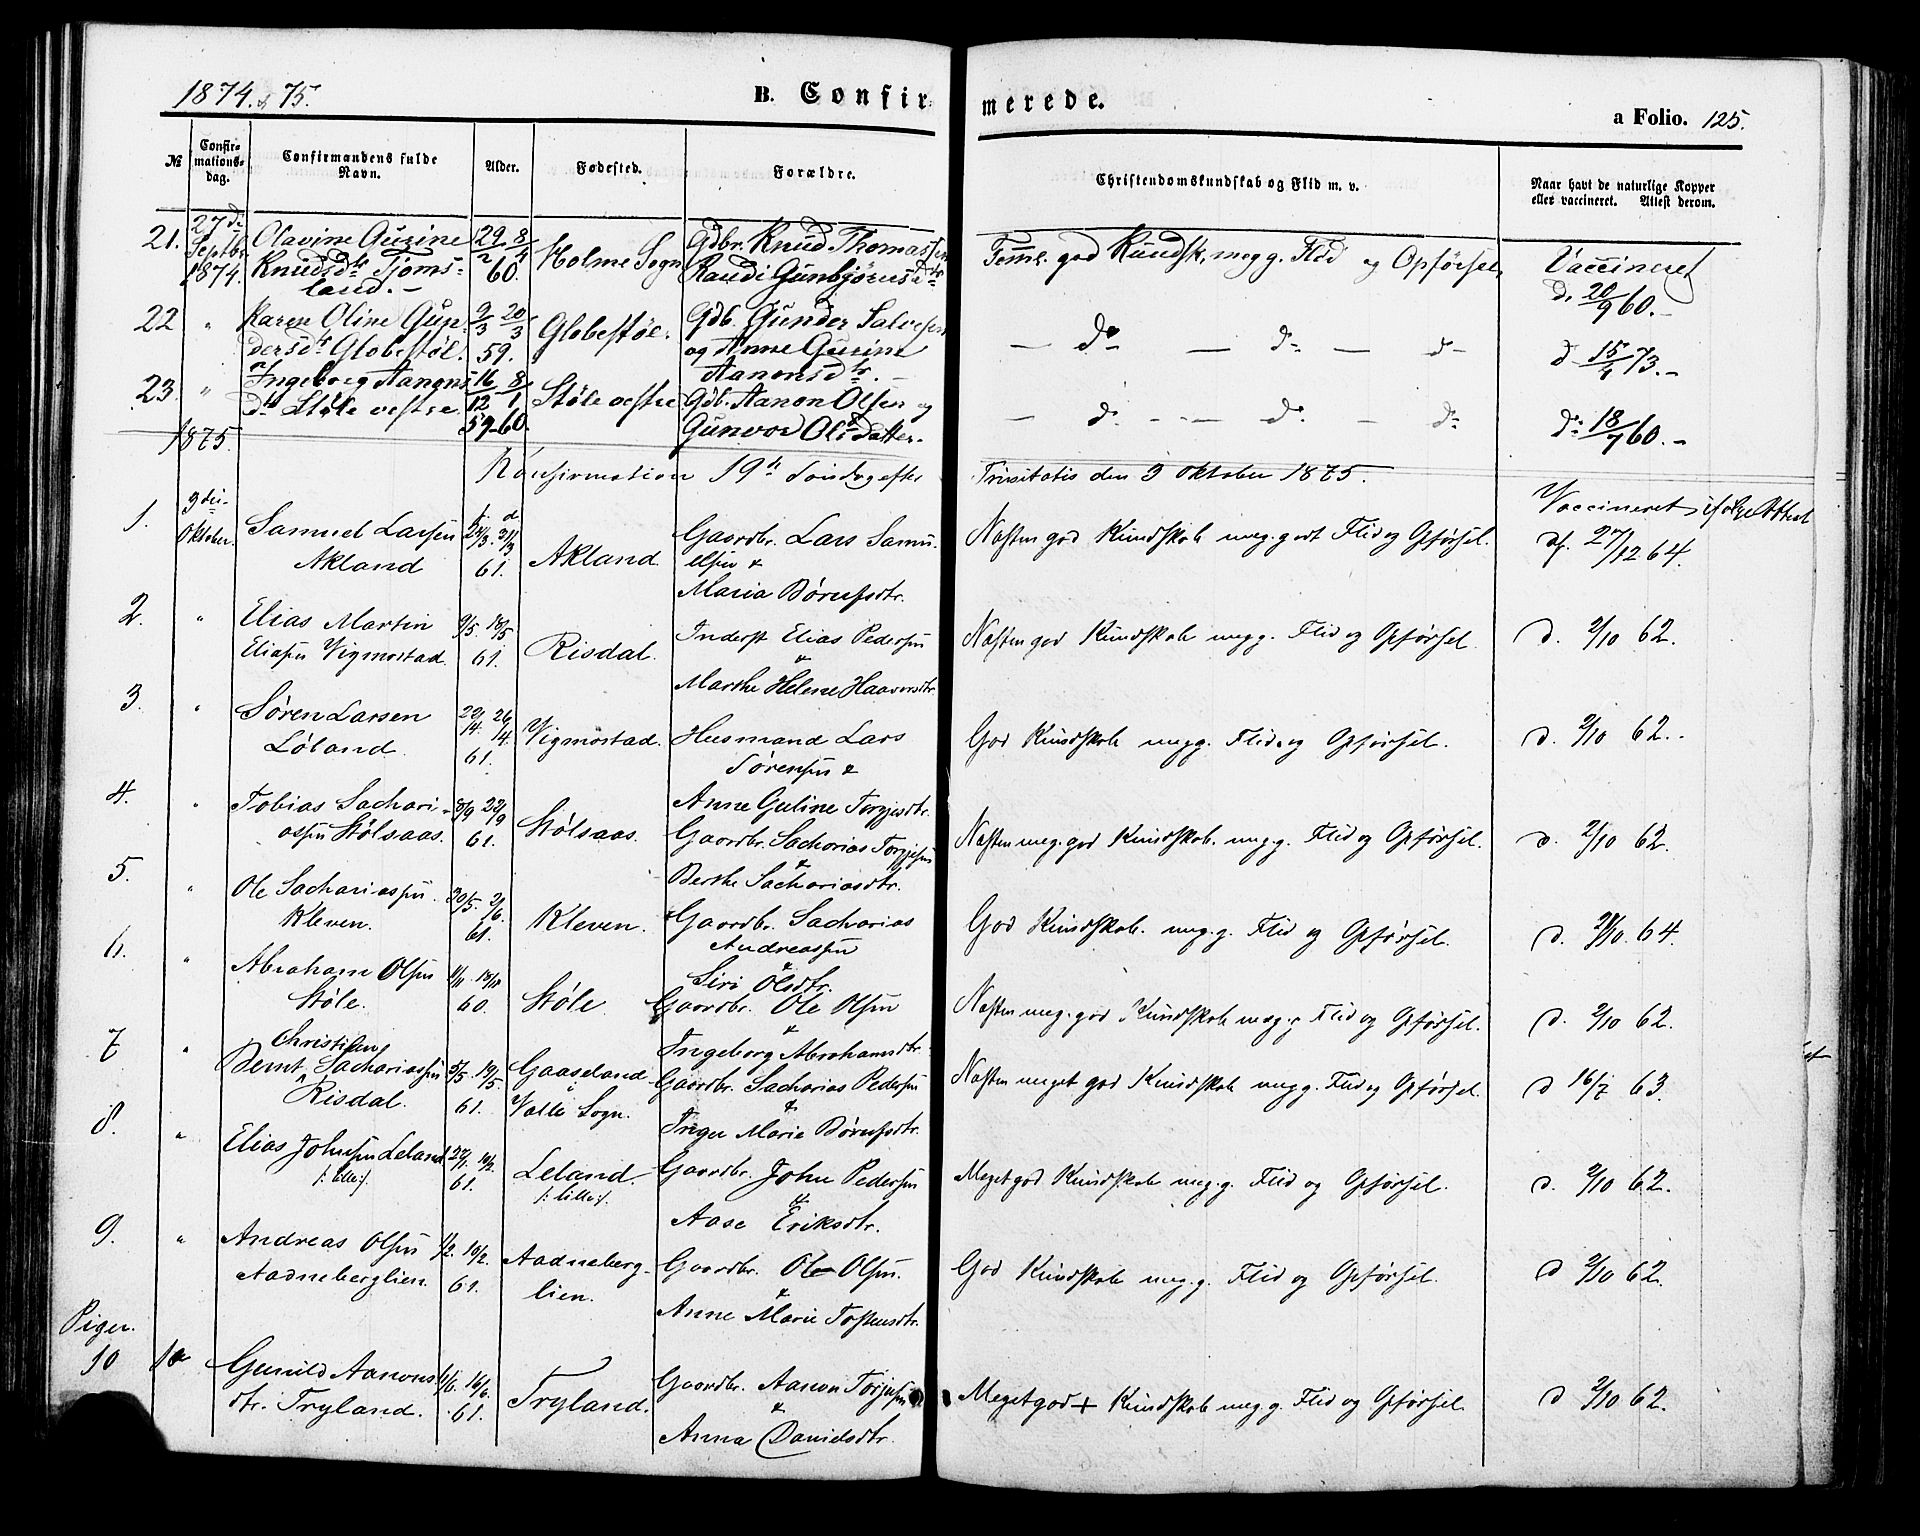 1874 & 75.
B. Confirmerede.
a Folio. 125.
№
Confir-
mations-
dag.
Confirmandens fulde
Navn.
Alder.
Fødested.
Forældre.
Christendomskundskab og Flid m. v.
Naar havt de naturlige Kopper
eller vaccineret. Attest derom.
21. 27de Septbr. 1874. Olavine Gurine
Knudsdtr Tjoms-
land. 29/2 8/4 60. Holme Sogn Gdbr. Knud Thomassen
Randi Gunbjørnsdtr
Temml. god Kundsk, meg g. Flid og Opførsel. Vaccineret
d. 20/9 60.
22 " Karen Oline Gun-
dersdtr Globestøl. 9/3 20/3 59. Globestøl. Gdb. Gunder Salvesen
og Anne Gurine
Aanonsdtr.
— do — do — do d 15/4 73.
23. " Ingeborg Aanons-
dtr Støle vestre. 16/12 8/1 59-60. Støle vestre Gdb. Aanon Olsen og
Gunvor Olsdatter.
— do — do — do do 18/7 60.
1875.
Konfirmation 19de Søndag efter Trinitatis den 3 Oktober 1875.
Vaccineret, ifølge Attest
1. 3die Oktober. Samuel Larsen
Akland 61. Akland. Gaardbr. Lars Samu-
elsen &
Maria Børufsdtr.
Næsten god Kundskab meg. godt Flid og Opførsel. df. 27/12 64.
2. " Elias Martin
Eliasen Vigmostad. 9/5. 18/5 61. Risdal. Inderst Elias Pedersen
&
Marthe Helene Haavorsdtr.
Næsten god Kundskab meg g. Flid og Opførsel. d. 2/10 62.
3. " Søren Larsen
Løland. 22/4. 26/4. 61. Vigmostad. Husmand Lars
Sørensen &
Anne Guline Torgjesdtr.
God Kundskab meg g. Flid og Opførsel. d. 2/10 62.
4. " Tobias Sachari-
assen Stølsaas. 8/9 22/9 61. Stølsaas. Gaardbr. Sacharias Torgjesen
&
Berthe Sachariasdtr.
Næsten meg. god Kundskab. meg g. Flid og Opførsel. d. 2/10 62.
5. " Ole Sachariassen
Kleven. 30/5. 2/6. 61. Kleven. Gaardbr. Sacharias
Andreassen
&
Siri Olsdtr.
God Kundskab. meg. g. Flid og Opførsel. d. /10. 64.
6. " Abraham Olsen
Støle. 60. Støle. Gaardbr. Ole Olsen
&
Ingeborg Abrahamsdtr.
Næsten meg. god Kundskab meg. g Flid og Opførsel. d. 2/10 62.
7 " Christian
Bernt Sachariassen
Risdal. 5/5 19/5 61. Gaaseland
Valle Sogn. Gaardbr. Sacharias Pedersen
&
Inger Marie Børufsdtr.
Næsten meget god Kundskab meg g. Flid og Opførsel. d 16/7 63.
8. " Elias Johnsen Leland
/: lille:/. 27/1. 10/2. 61. Leland.
/: lille:/. Gaardbr. John Pedersen
&
Aase Eriksdtr.
Meget god Kundskab meg. g. Flid og Opførsel. d. 2/10 62.
9. " Andreas Olsen
Aadneberglien. 1/2. 10/2. 61. Aadneberg-
lien. Gaardbr. Ole Olsen.
&
Anne Marie Tostensdtr.
God Kundskab meg. g. Flid og Opførsel. d 2/10 62.
Piger.
10 Gunild Aanons-
dtr. Tryland. 1/6. 16/6. 61. Tryland. Gaardbr. Aanon Torjusen
&
Anna Davidsdtr.
Meget god + Kundskab meg. g. Flid og Opførsel. d 2/10 62.